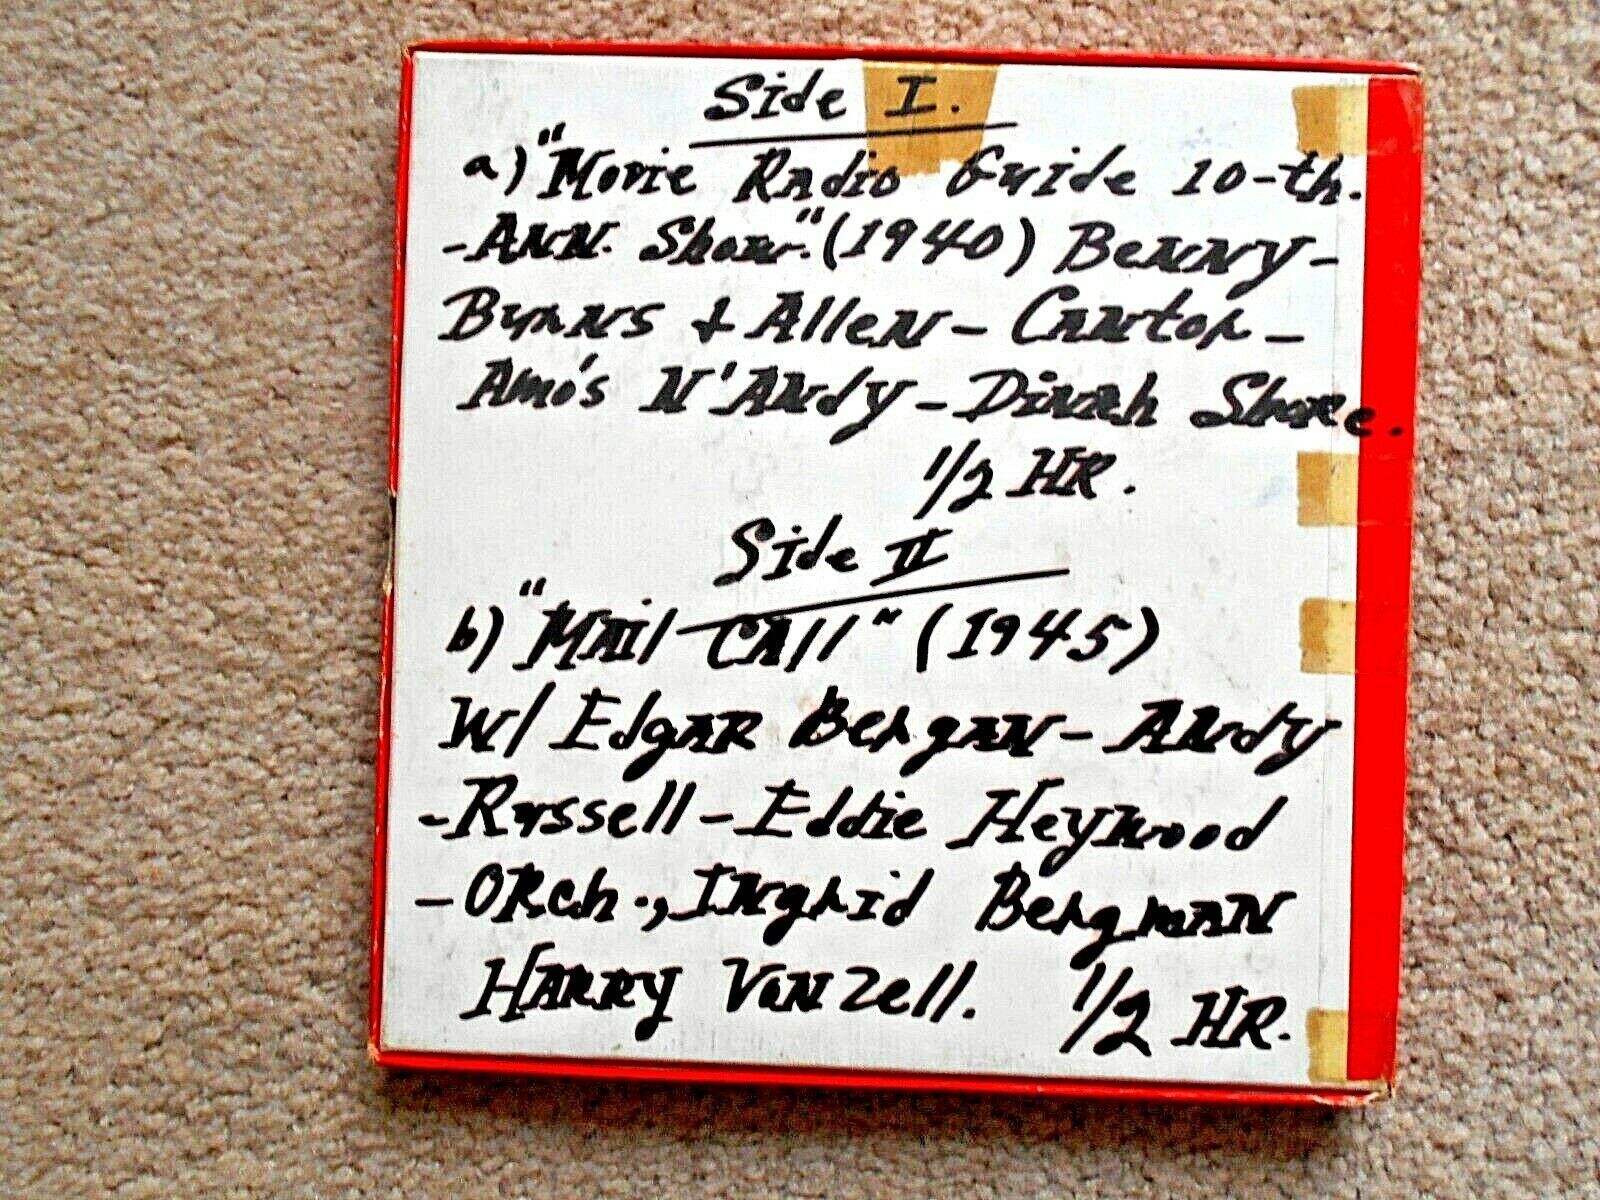 Side I.
a) "Movie Radio Guide 10-th.
-Ann. Show." (1940) Benny-
Burns & Allen- Cantor-
Amo's N' Andy-Dinah Shore.
1/2 HR.
Side II
b) "Mail Call" (1945)
W/ Edgar Bergan- Andy
-Russell-Eddie Heywood
-Orch., Ingrid Bergman
Harry Von Zell. 1/2 HR.